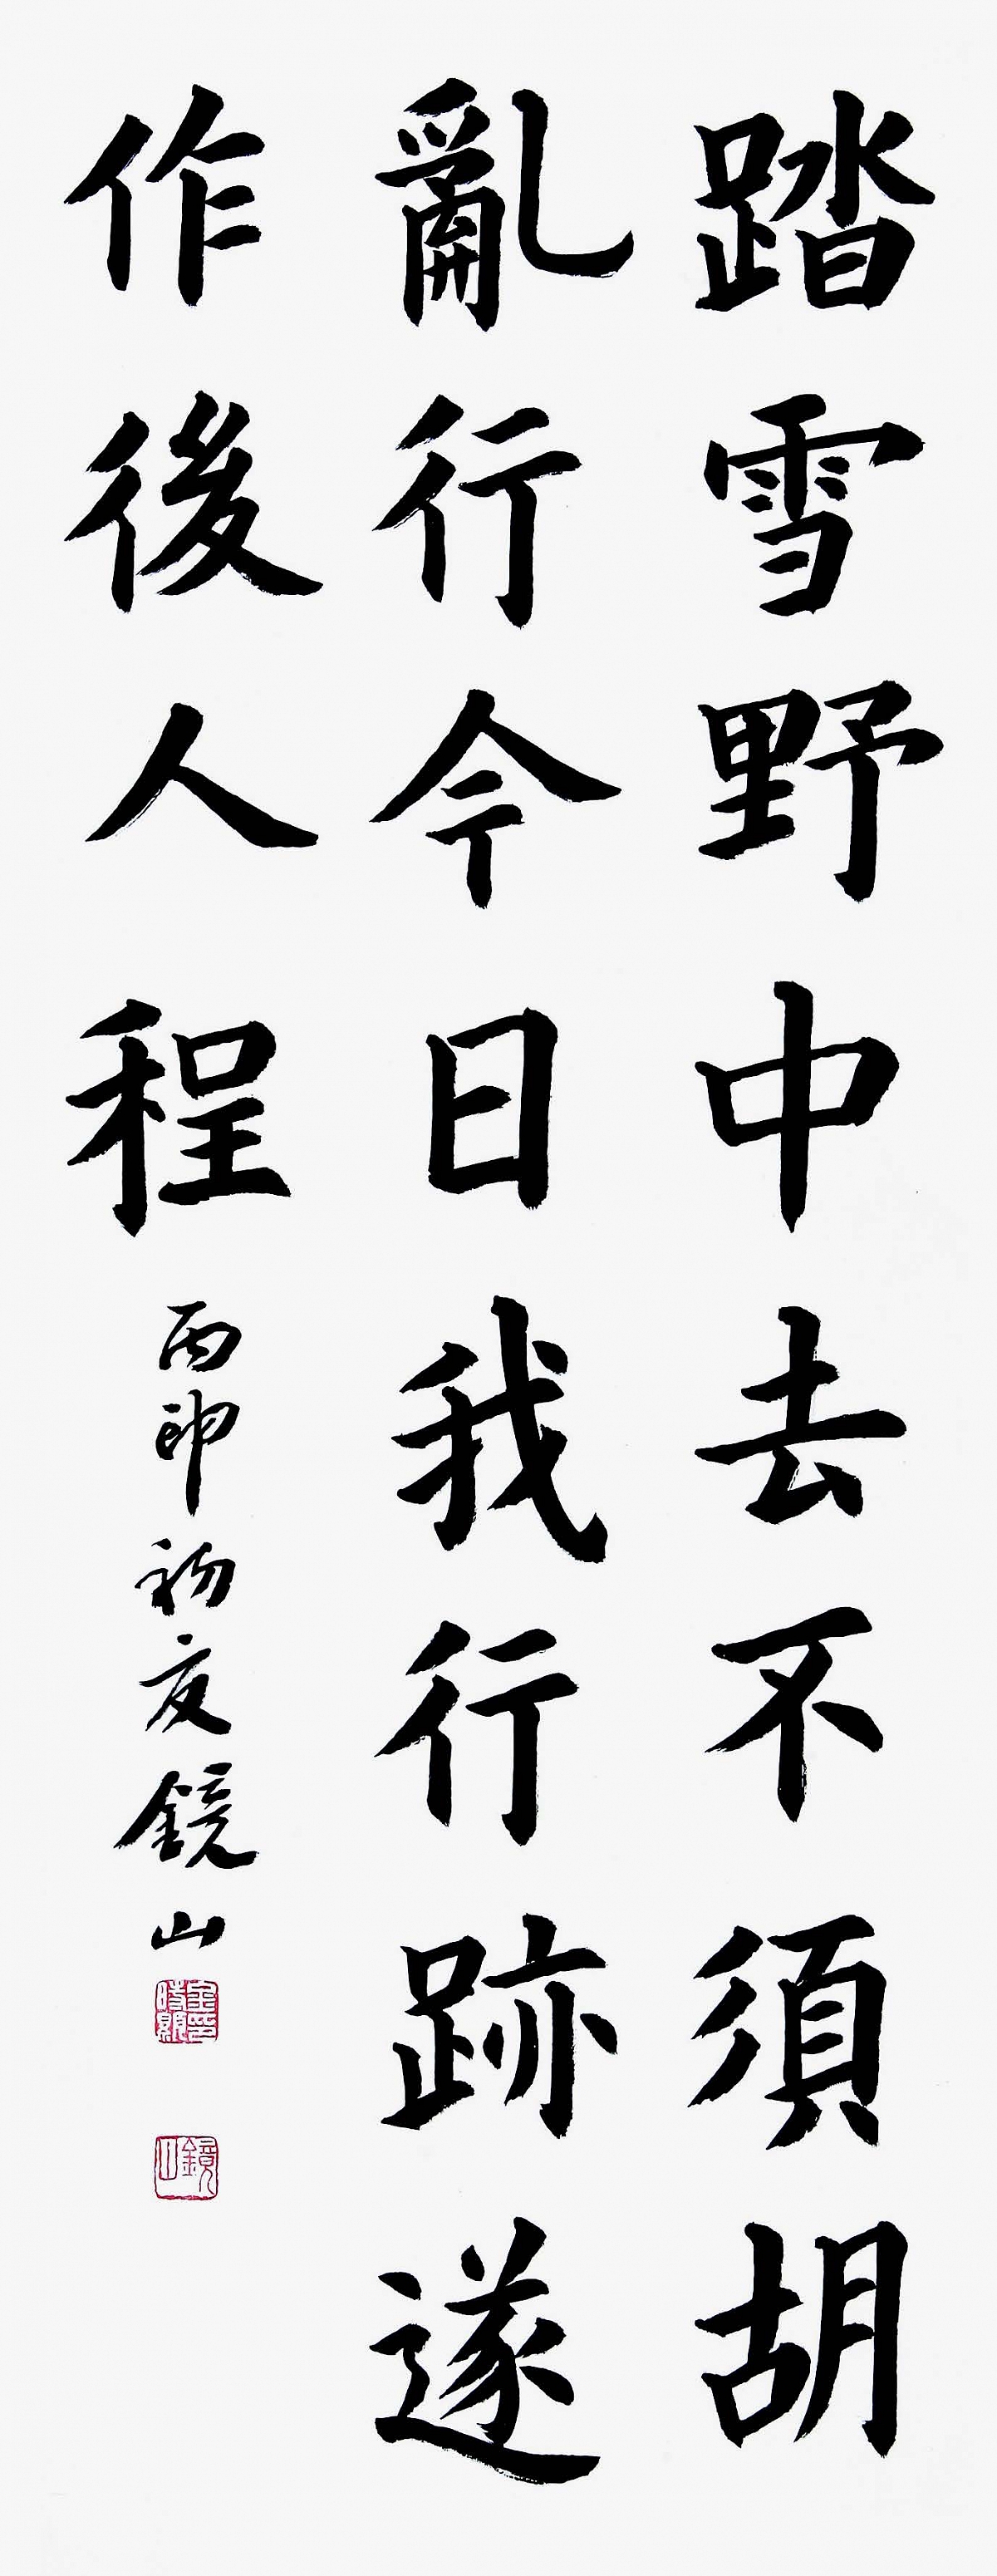 踏雪野中去不須胡
亂行今日我行跡遂
作後人程
丙申初夏鏡山
鏡山